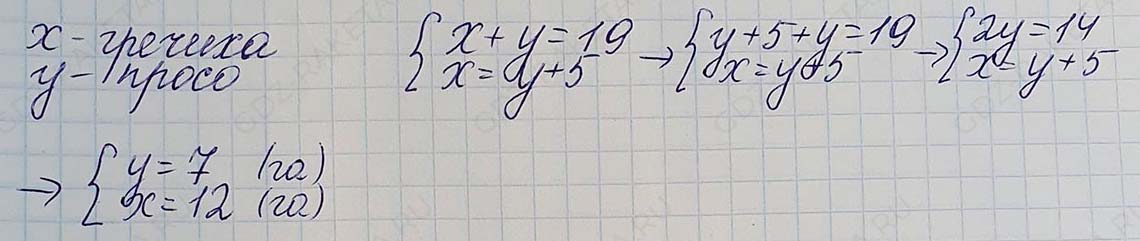 x - гречиха
y - просо
{ x + y = 19 → { y + 5 + y = 19 → { 2y = 14
x = y + 5 x = y + 5 x = y + 5
→ { y = 7 (га)
x = 12 (га)